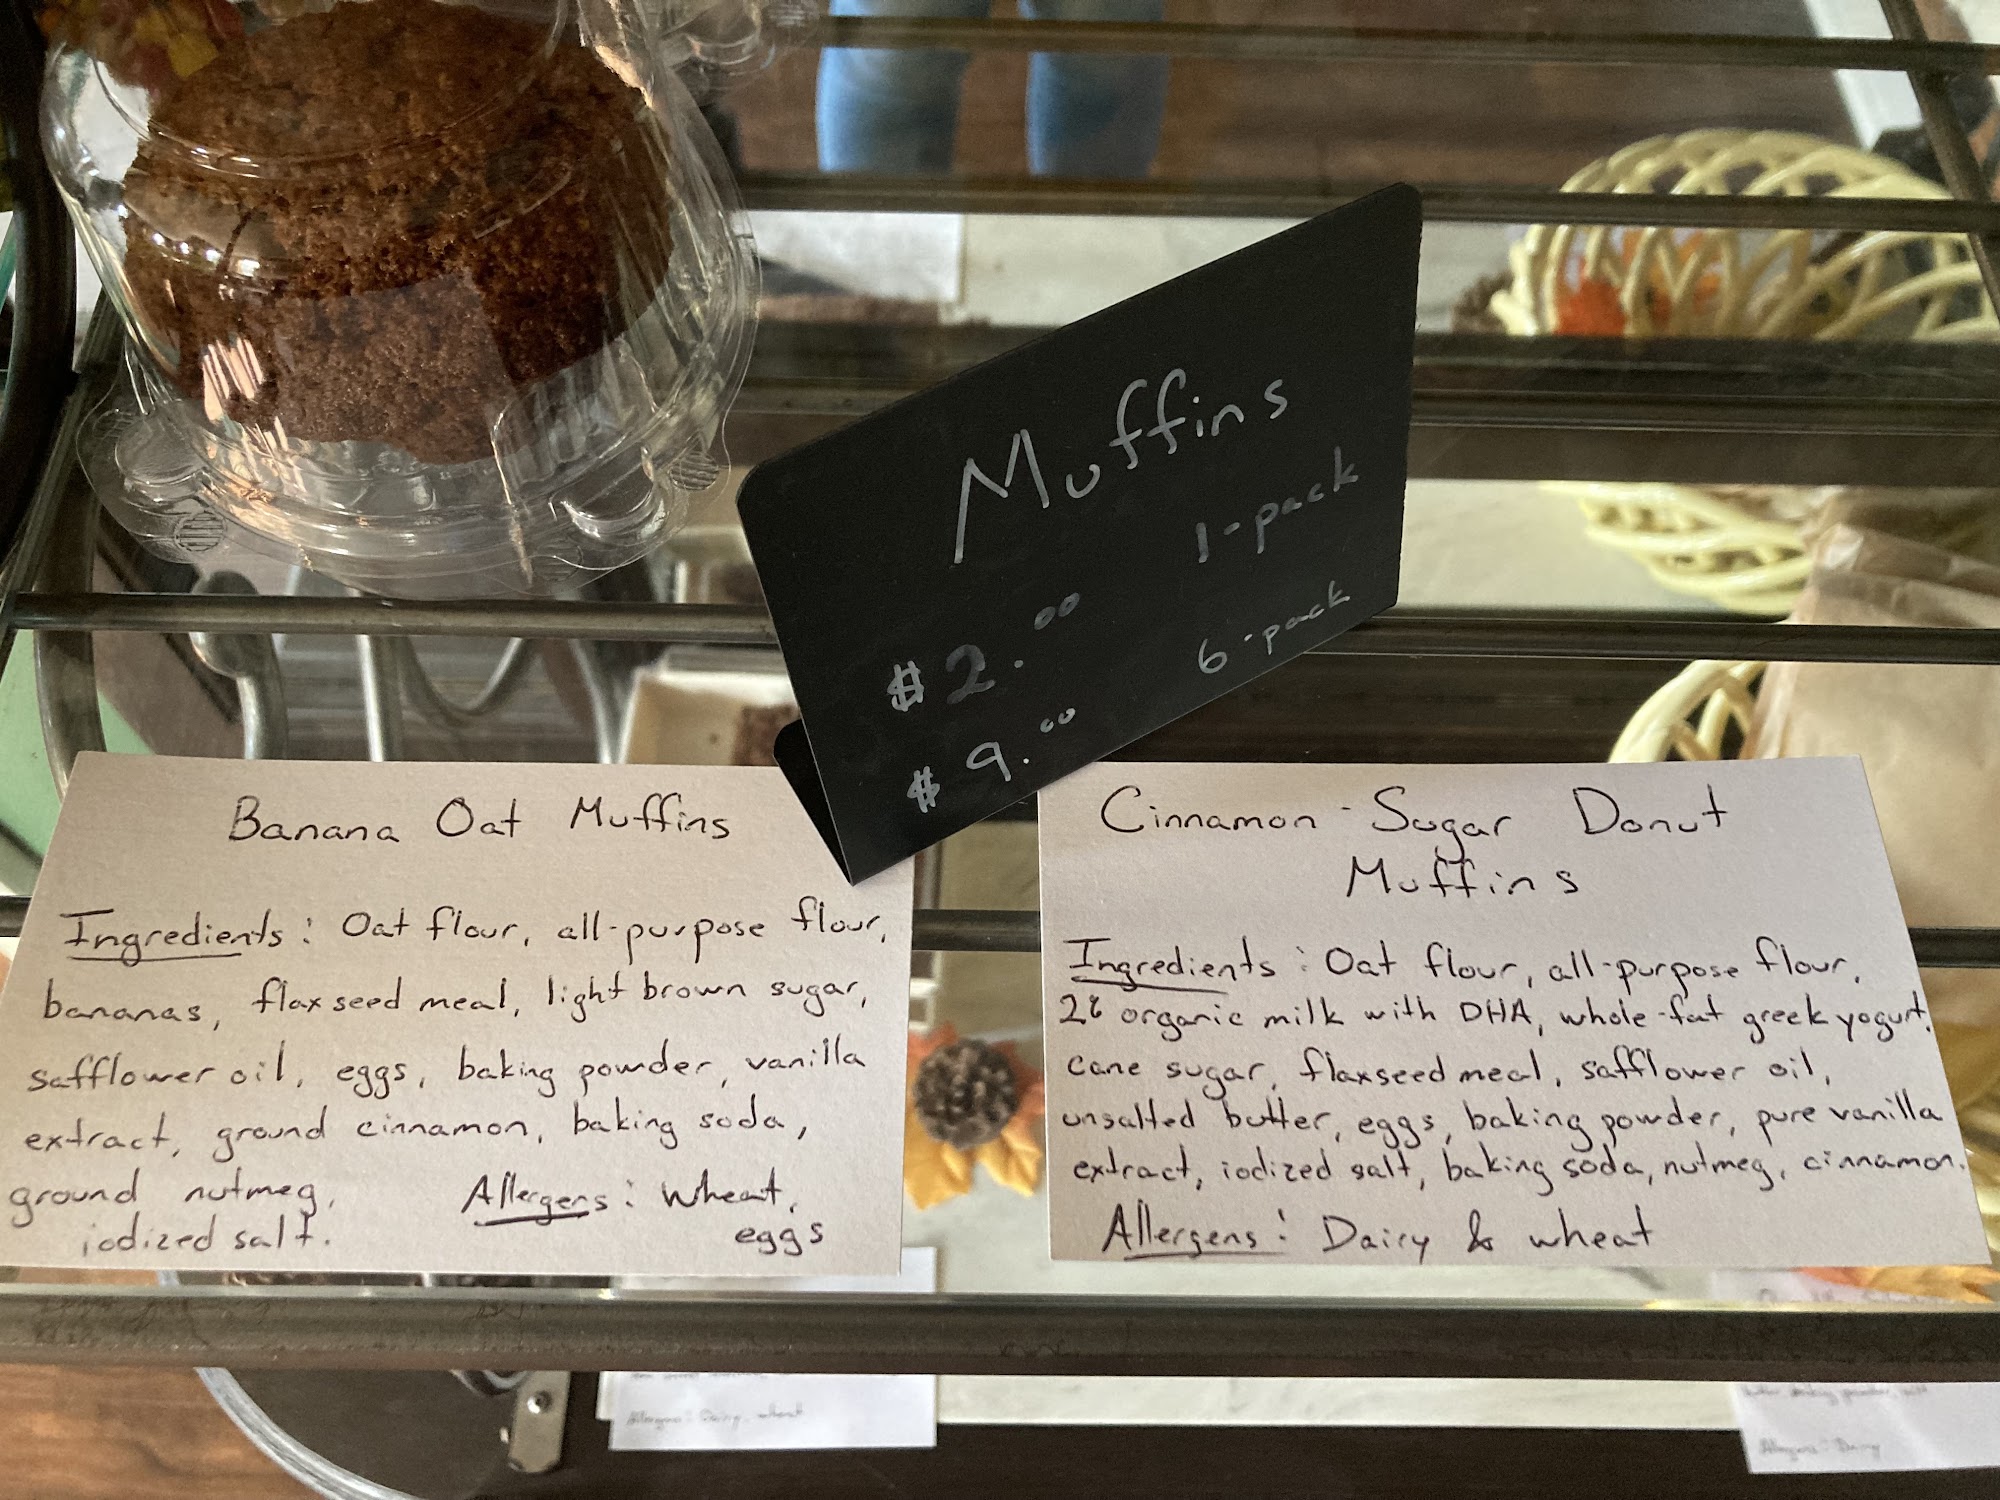 Muffins
$2.00 1-pack
$9.00 6-pack
Banana Oat Muffins
Ingredients: Oat flour, all-purpose flour,
bananas, flaxseed meal, light brown sugar,
safflower oil, eggs, baking powder, vanilla
extract, ground cinnamon, baking soda,
ground nutmeg,
iodized salt.
Allergens: Wheat,
eggs
Cinnamon-Sugar Donut
Muffins
Ingredients: Oat flour, all-purpose flour,
2% organic milk with DHA, whole-fat greek yogurt,
cane sugar, flaxseed meal, safflower oil,
unsalted butter, eggs, baking powder, pure vanilla
extract, iodized salt, baking soda, nutmeg, cinnamon.
Allergens: Dairy & wheat
Allergens: Dairy, wheat
Allergens: Dairy